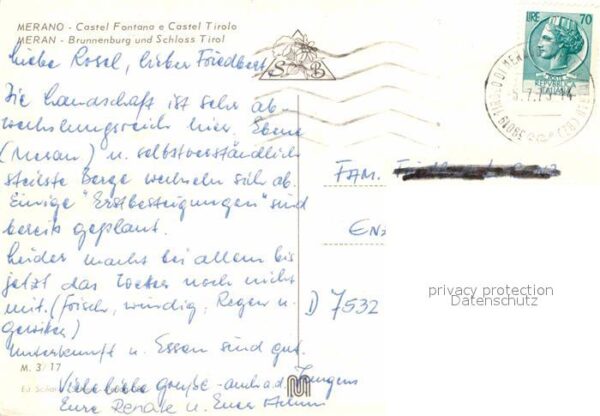 MERANO - Castel Fontana e Castel Tirolo
MERAN - Brunnenburg und Schloss Tirol
Liebe Rosel, lieber Friedbert,
Die Landschaft ist sehr ab-
wechslungsreich hier. Ebene
(Meran) u. selbstverständlich
steilste Berge wechseln sich ab.
Einige "Erstbesteigungen" sind
bereits geplant.
Leider macht bei allem bis
jetzt das Wetter noch nicht
mit. (frisch, windig, Regen u.
Gewitter)
Unterkunft u. Essen sind gut.
M. 3/17
Viele liebe Grüße - auch a.d. Jungens
Eure Renate u. Euer
S B
LIRE 70
REPVBBLICA
ITALIANA
39019 TIROLO DI MER
FAM.
D 7532
privacy protection
Datenschutz